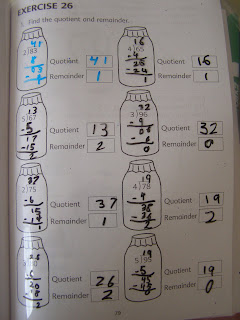 EXERCISE 26
Find the quotient and remainder.
41
2)83
8
03
1
Quotient 41
Remainder 1
16
4)65
-4
25
-24
1
Quotient 16
Remainder 1
13
5)67
-5
17
-15
2
Quotient 13
Remainder 2
32
3)96
-9
06
-6
0
Quotient 32
Remainder 0
37
2)75
-6
15
-14
1
Quotient 37
Remainder 1
19
4)78
-4
38
-36
2
Quotient 19
Remainder 2
26
-6
20
-18
2
Quotient 26
Remainder 2
19
5)95
-5
45
-45
0
Quotient 19
Remainder 0